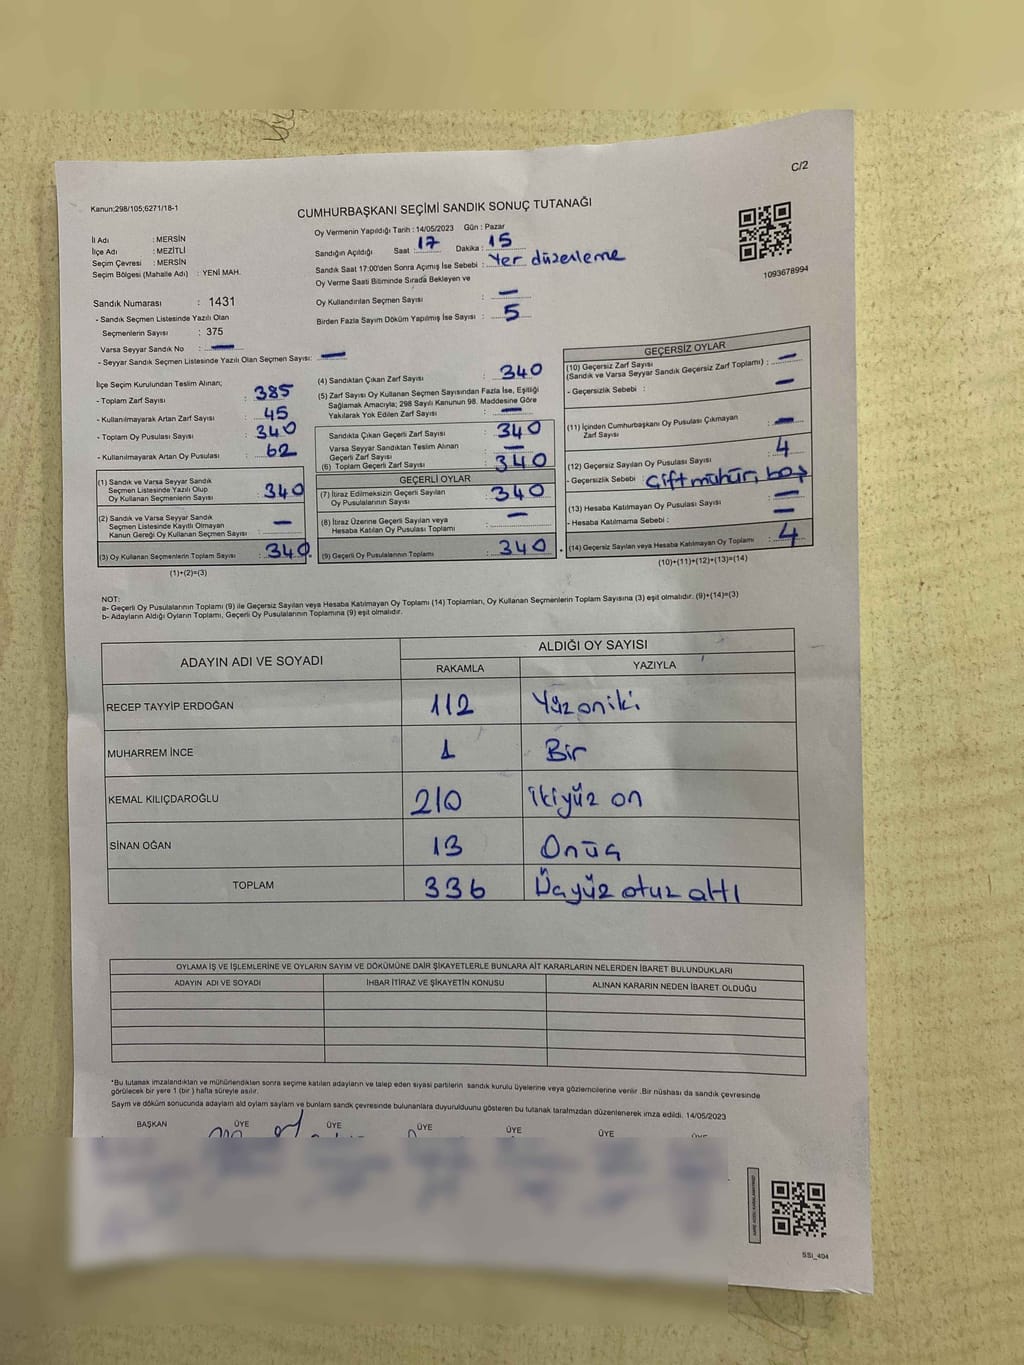 C/2
Kanun;298/105;6271/18-1
CUMHURBAŞKANI SEÇİMİ SANDIK SONUÇ TUTANAĞI
İl Adı : MERSİN
İlçe Adı : MEZİTLİ
Seçim Çevresi : MERSİN
Seçim Bölgesi (Mahalle Adı) : YENİ MAH.
Oy Vermenin Yapıldığı Tarih : 14/05/2023 Gün : Pazar
Sandığın Açıldığı Saat : 17 Dakika : 15
Sandık Saat 17:00'den Sonra Açımış İse Sebebi : Yer düzenleme
Oy Verme Saati Bitiminde Sırada Bekleyen ve
Oy Kullandırılan Seçmen Sayısı : —
Birden Fazla Sayım Döküm Yapılmış İse Sayısı : 5
1093678994
Sandık Numarası : 1431
- Sandık Seçmen Listesinde Yazılı Olan
Seçmenlerin Sayısı : 375
Varsa Seyyar Sandık No : —
- Seyyar Sandık Seçmen Listesinde Yazılı Olan Seçmen Sayısı: —
İlçe Seçim Kurulundan Teslim Alınan;
- Toplam Zarf Sayısı : 385
- Kullanılmayarak Artan Zarf Sayısı : 45
- Toplam Oy Pusulası Sayısı : 340
- Kullanılmayarak Artan Oy Pusulası : 62
(1) Sandık ve Varsa Seyyar Sandık
Seçmen Listesinde Yazılı Olup
Oy Kullanan Seçmenlerin Sayısı : 340
(2) Sandık ve Varsa Seyyar Sandık
Seçmen Listesinde Kayıtlı Olmayan
Kanun Gereği Oy Kullanan Seçmen Sayısı : —
(3) Oy Kullanan Seçmenlerin Toplam Sayısı : 340.
(1)+(2)=(3)
(4) Sandıktan Çıkan Zarf Sayısı : 340
(5) Zarf Sayısı Oy Kullanan Seçmen Sayısından Fazla İse, Eşitliği
Sağlamak Amacıyla; 298 Sayılı Kanunun 98. Maddesine Göre
Yakılarak Yok Edilen Zarf Sayısı : —
Sandıkta Çıkan Geçerli Zarf Sayısı : 340
Varsa Seyyar Sandıktan Teslim Alınan
Geçerli Zarf Sayısı : —
(6) Toplam Geçerli Zarf Sayısı : 340
GEÇERLİ OYLAR
(7) İtiraz Edilmeksizin Geçerli Sayılan
Oy Pusulalarının Sayısı : 340
(8) İtiraz Üzerine Geçerli Sayılan veya
Hesaba Katılan Oy Pusulası Toplamı : —
(9) Geçerli Oy Pusulalarının Toplamı : 340
GEÇERSİZ OYLAR
(10) Geçersiz Zarf Sayısı
(Sandık ve Varsa Seyyar Sandık Geçersiz Zarf Toplamı) : —
- Geçersizlik Sebebi : —
(11) İçinden Cumhurbaşkanı Oy Pusulası Çıkmayan
Zarf Sayısı : —
(12) Geçersiz Sayılan Oy Pusulası Sayısı : 4
- Geçersizlik Sebebi : Çift mühür, boş
(13) Hesaba Katılmayan Oy Pusulası Sayısı : —
- Hesaba Katılmama Sebebi : —
(14) Geçersiz Sayılan veya Hesaba Katılmayan Oy Toplamı : 4
(10)+(11)+(12)+(13)=(14)
NOT:
a- Geçerli Oy Pusulalarının Toplamı (9) ile Geçersiz Sayılan veya Hesaba Katılmayan Oy Toplamı (14) Toplamları, Oy Kullanan Seçmenlerin Toplam Sayısına (3) eşit olmalıdır. (9)+(14)=(3)
b- Adayların Aldığı Oyların Toplamı, Geçerli Oy Pusulalarının Toplamına (9) eşit olmalıdır.
ADAYIN ADI VE SOYADI ALDIĞI OY SAYISI
RAKAMLA YAZIYLA
RECEP TAYYİP ERDOĞAN 112 Yüz oniki
MUHARREM İNCE 1 Bir
KEMAL KILIÇDAROĞLU 210 İkiyüz on
SİNAN OĞAN 13 Onüç
TOPLAM 336 Üçyüz otuz altı
OYLAMA İŞ VE İŞLEMLERİNE VE OYLARIN SAYIM VE DÖKÜMÜNE DAİR ŞİKAYETLERLE BUNLARA AİT KARARLARIN NELERDEN İBARET BULUNDUKLARI
ADAYIN ADI VE SOYADI İHBAR İTİRAZ VE ŞİKAYETİN KONUSU ALINAN KARARIN NEDEN İBARET OLDUĞU
*Bu tutanak imzalandıktan ve mühürlendikten sonra seçime katılan adayların ve talep eden siyasi partilerin sandık kurulu üyelerine veya gözlemcilerine verilir .Bir nüshası da sandık çevresinde
görülecek bir yere 1 (bir ) hafta süreyle asılır.
Sayım ve döküm sonucunda adayların ald oyların sayların ve bunların sandk çevresinde bulunanlara duyurulduunu gösteren bu tutanak tarafmzdan düzenlenerek imza edildi. 14/05/2023
BAŞKAN ÜYE ÜYE ÜYE ÜYE ÜYE ÜYE
SSI_404